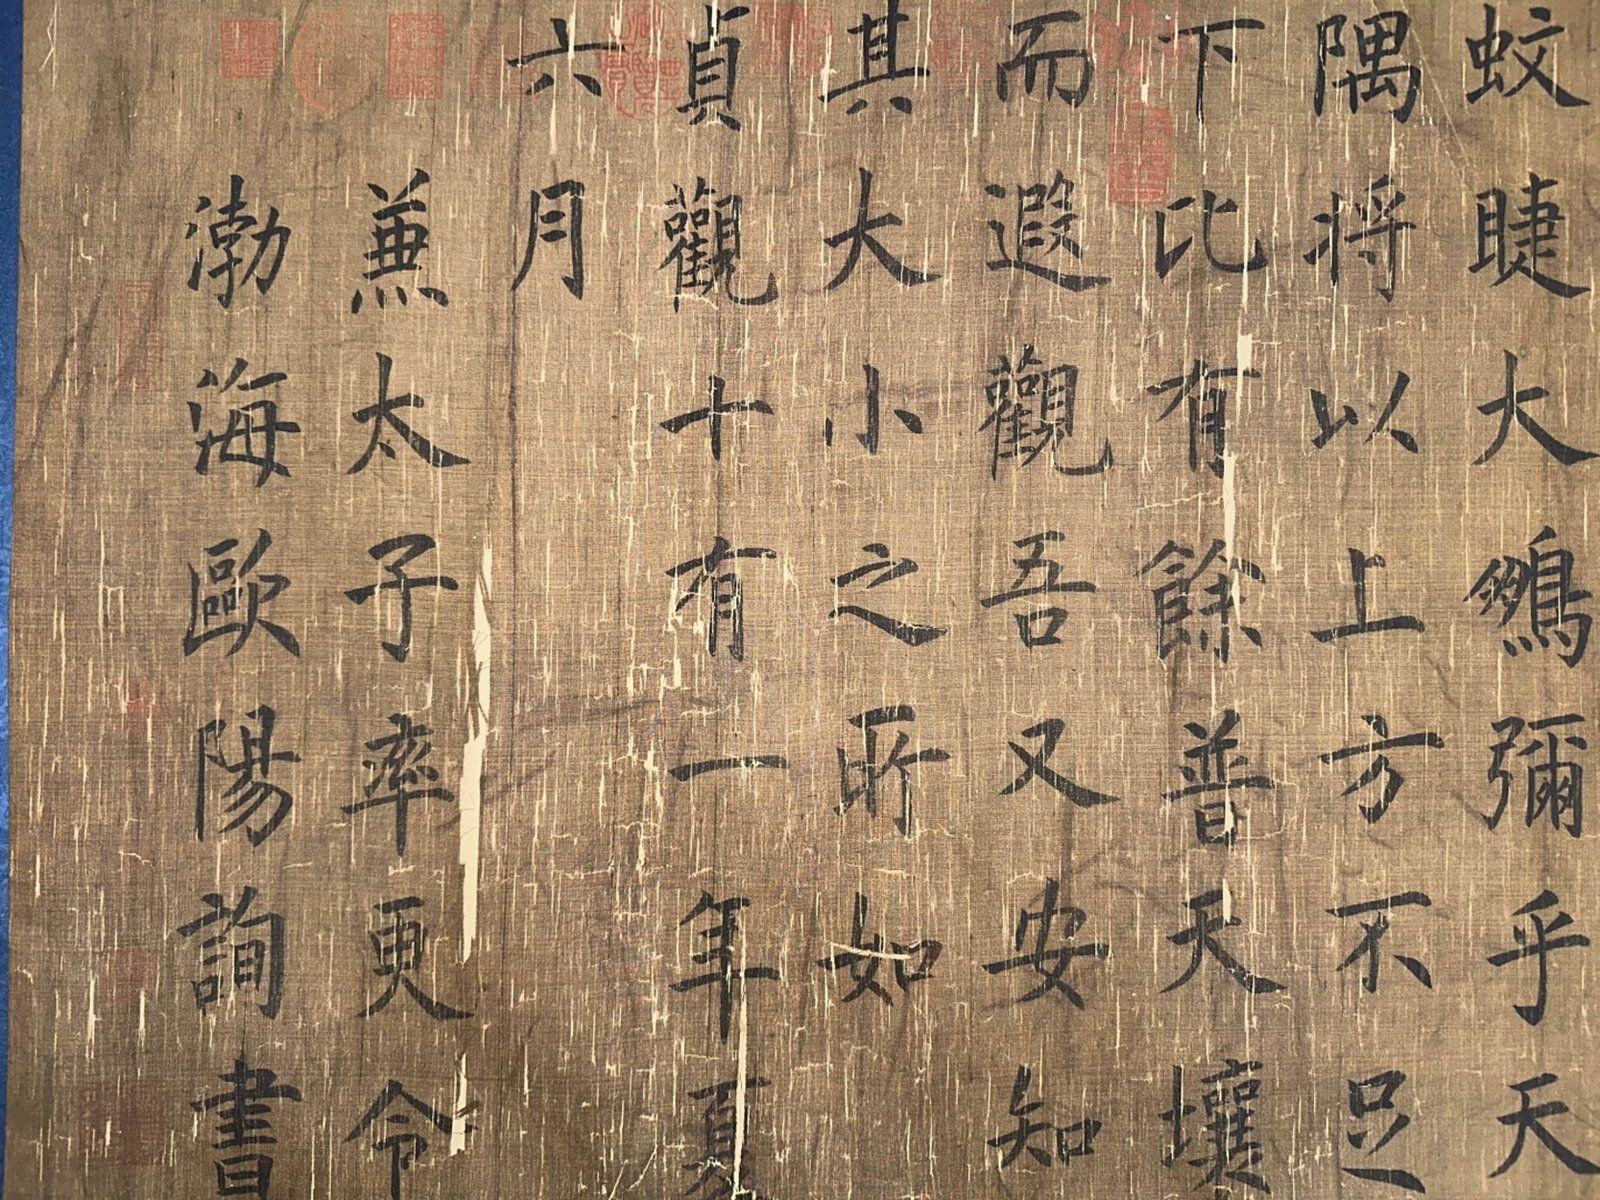 蚊睫大鵬彌乎天
隅将以上方不足
下比有餘普天壤
而遐觀吾又安知
其大小之所如
貞觀十有一年夏
六月
兼太子率更令
渤海歐陽詢書